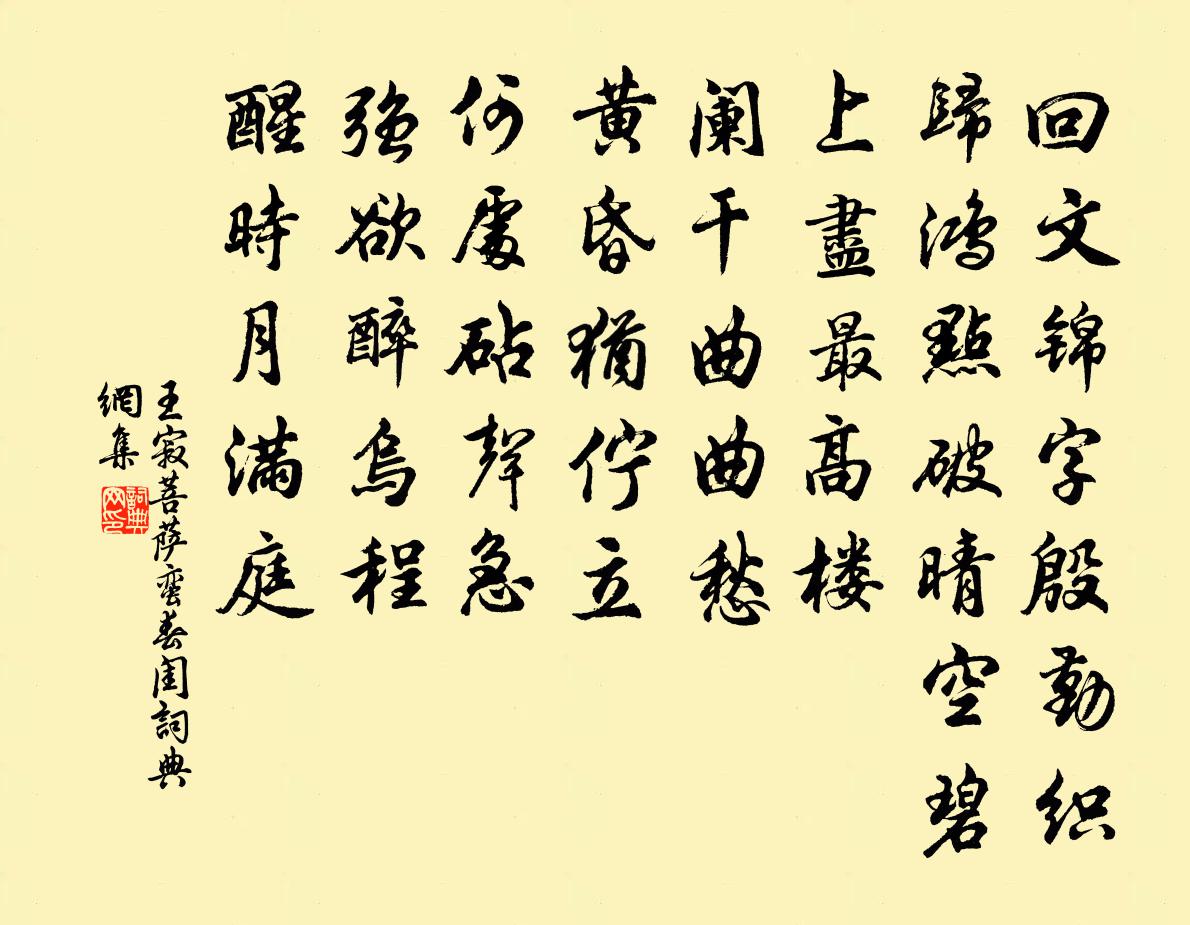 回文锦字殷勤织
歸鸿點破晴空碧
上盡最高楼
阑干曲曲愁
黄昏犹伫立
何處砧聲急
強欲醉烏程
醒時月满庭
王寂菩萨蛮春闺詞典
網集
詞典
网印